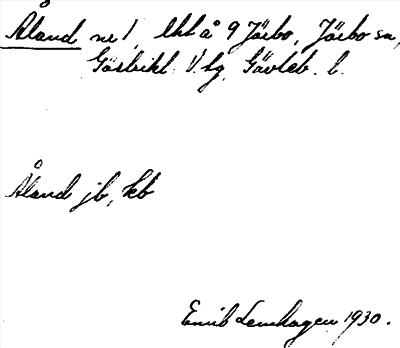 Åland nr 1, lht å 9 Järbo, Järbo sn,
Gästrikl. V. tg, Gävleb. l.
Åland jb, kb
Emil Lenhagen 1930.